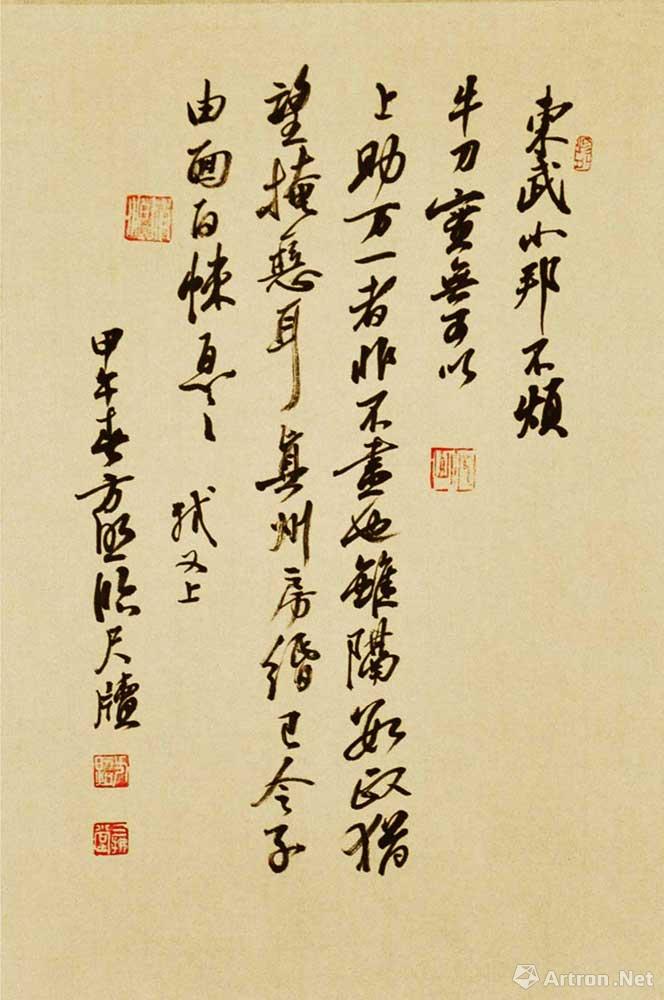 東武小邦不煩
牛刀實無可以
上助万一者非不盡也雖隔數政猶
望掩惡耳真州房緡已令子
由面白悚息〻 軾又上
甲午春方臨尺牘
Artron.Net